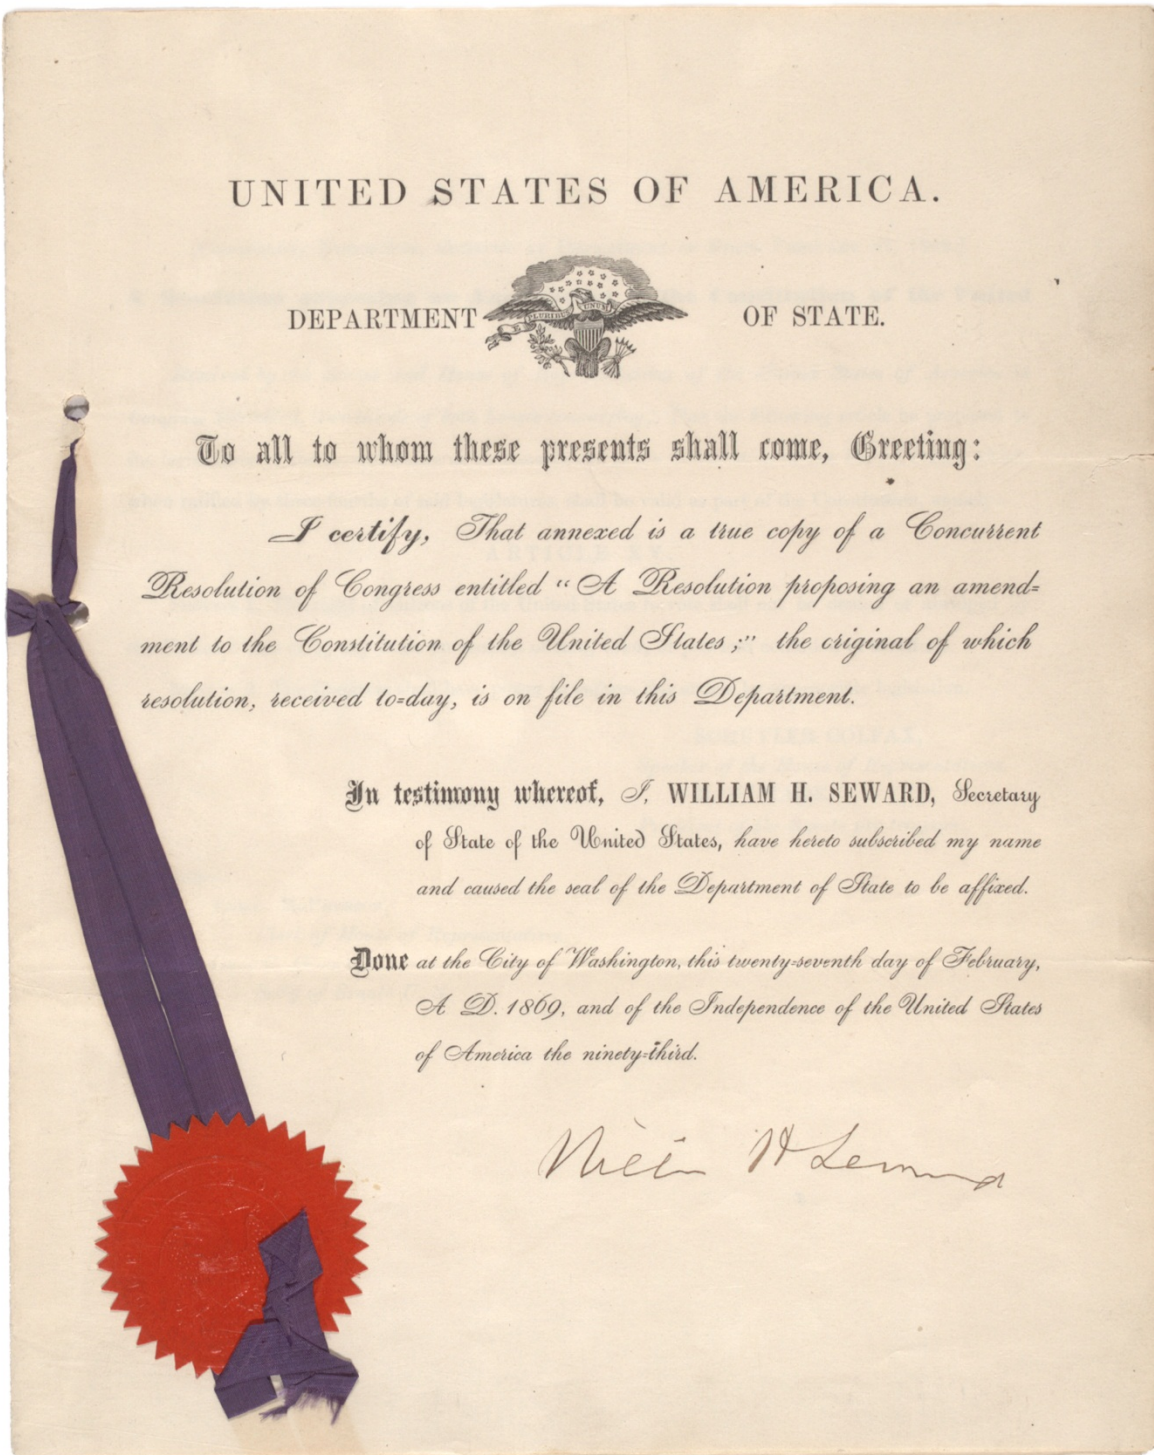 UNITED STATES OF AMERICA.
DEPARTMENT OF STATE.
PLURIBUS UNUM
To all to whom these presents shall come, Greeting:
I certify, That annexed is a true copy of a Concurrent
Resolution of Congress entitled "A Resolution proposing an amend=
ment to the Constitution of the United States;" the original of which
resolution, received to=day, is on file in this Department.
In testimony whereof, I, WILLIAM H. SEWARD, Secretary
of State of the United States, have hereto subscribed my name
and caused the seal of the Department of State to be affixed.
Done at the City of Washington, this twenty=seventh day of February,
A. D. 1869, and of the Independence of the United States
of America the ninety=third.
William H Seward